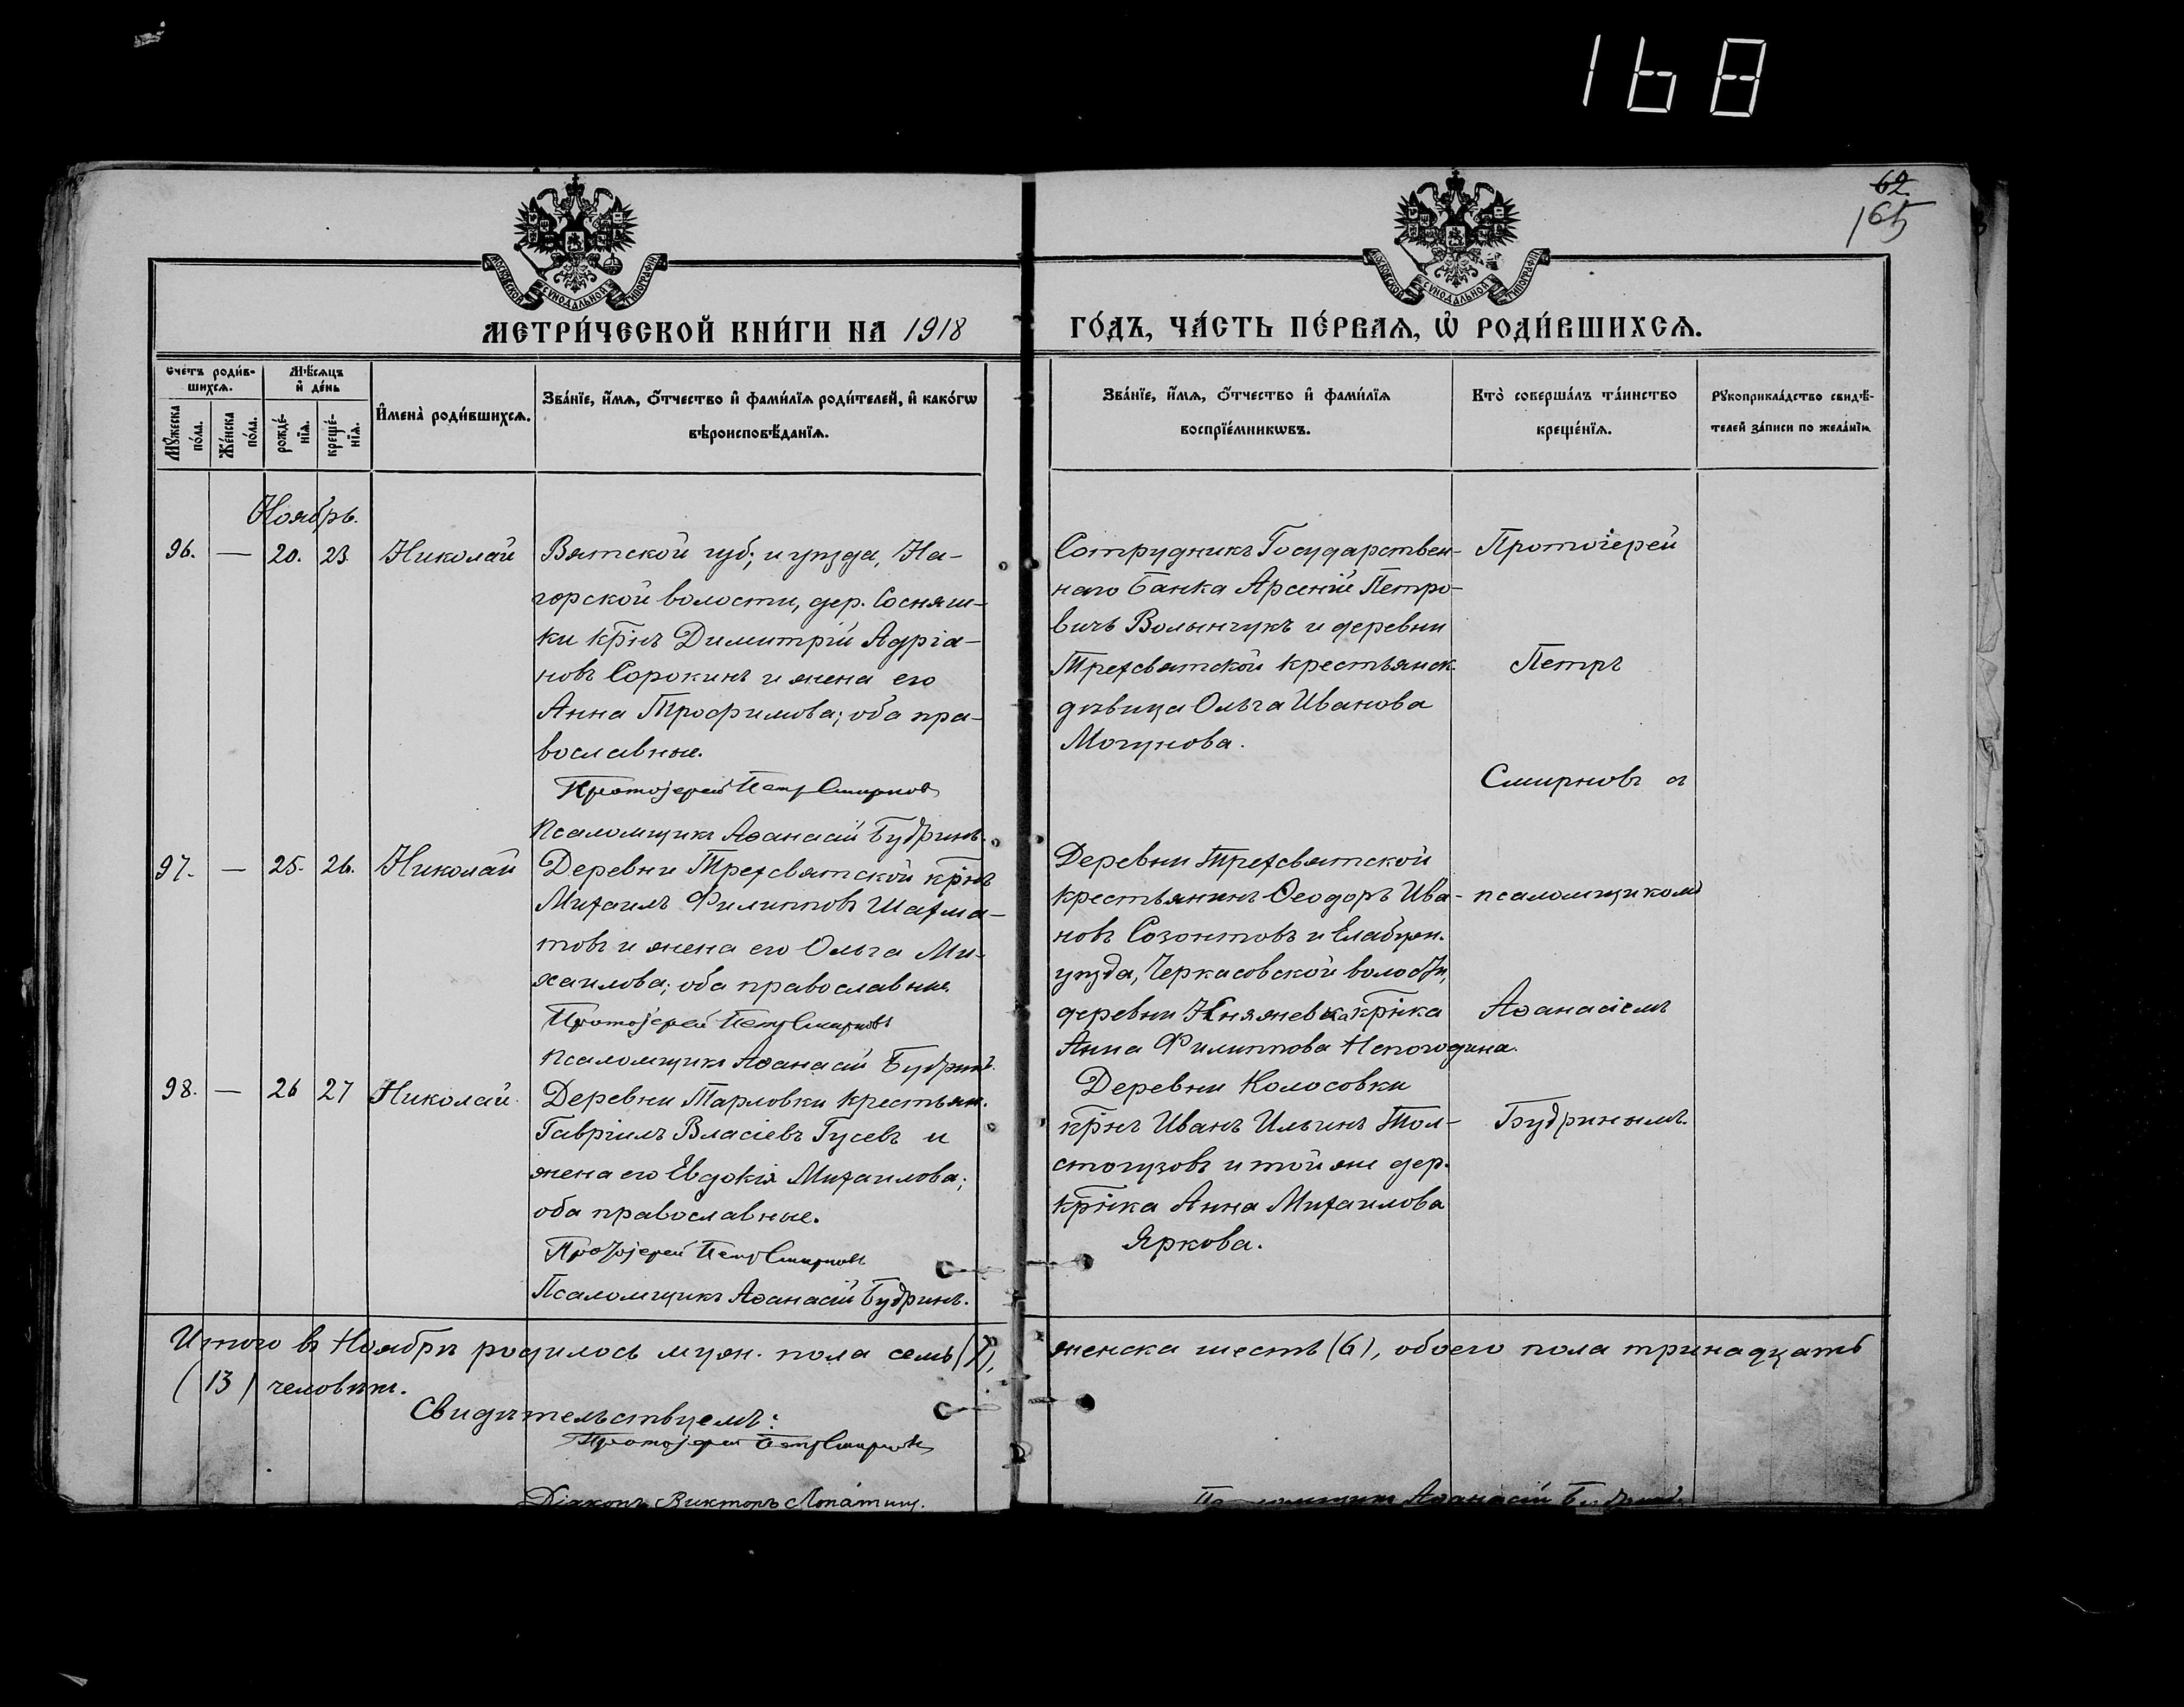 168
62
165
МОСКОВСКОЙ СУНОДАЛЬНОЙ ТИПОГРАФІИ
МОСКОВСКОЙ СУНОДАЛЬНОЙ ТИПОГРАФІИ
МЕТРИ́ЧЕСКОЙ КНИ́ГИ НА 1918
ГО́ДЪ, ЧА́СТЬ ПЕ́РВАѦ, Ѡ҆ РОДИ́ВШИХСѦ.
Сче́тъ роди́в-
шихсѧ.
Мѣ́сѧцъ
и҆ де́нь
Мꙋ́жеска
по́ла.
Же́нска
по́ла.
рожде́-
нїѧ.
креще́-
нїѧ.
И҆мена̀ роди́вшихсѧ.
Зва́нїе, и҆́мѧ, ѻ҆́тчество и҆ фами́лїѧ роди́телей, и҆ како́гѡ
вѣроисповѣ́данїѧ.
Зва́нїе, и҆́мѧ, ѻ҆́тчество и҆ фами́лїѧ
воспрїе́мникѡвъ.
Кто̀ соверша́лъ та́инство
креще́нїѧ.
Рꙋкоприкла́дство свидѣ́-
телей за́писи по жела́нїю.
Ноябрь.
96. — 20. 23. Николай
Вятской губ; и уѣзда, На-
горской волости, дер. Сосняш-
ки кр̅нъ Димитрій Адріа-
новъ Сорокинъ и жена его
Анна Трофимова; оба пра-
вославные.
Протоіерей Петръ Смирновъ
Псаломщикъ Аѳанасій Будринъ.
Сотрудникъ Государствен-
наго Банка Арсеній Петро-
вичъ Волынчукъ и деревни
Трехсвятской крестьянск.
дѣвица Ольга Иванова
Могунова.
Протоіерей
Петръ
Смирновъ съ
псаломщикомъ
Аѳанасіемъ
Будринымъ.
97. — 25. 26. Николай
Деревни Трехсвятской кр̅нъ
Михаилъ Филипповъ Шахма-
товъ и жена его Ольга Ми-
хаилова; оба православные.
Протоіерей Петръ Смирновъ
Псаломщикъ Аѳанасій Будринъ.
Деревни Трехсвятской
крестьянинъ Ѳеодоръ Ива-
новъ Созонтовъ и Елабужн.
уѣзда, Черкасовской волости,
деревни Княжевка кр̅нка
Анна Филиппова Непогодина.
98. — 26 27 Николай
Деревни Тарловки крестьян.
Гавріилъ Власіевъ Гусевъ и
жена его Евдокія Михаилова;
оба православные.
Протоіерей Петръ Смирновъ
Псаломщикъ Аѳанасій Будринъ.
Деревни Колосовки
кр̅нъ Иванъ Ильинъ Тол-
стогузовъ и той же дер.
кр̅нка Анна Михаилова
Яркова.
Итого въ Ноябрѣ родилось муж. пола семь (7), женска шесть (6), обоего пола тринадцать
(13) человѣкъ.
Свидѣтельствуемъ:
Протоіерей Петръ Смирновъ
Діаконъ Викторъ Лопатинъ.
Псаломщикъ Аѳанасій Будринъ.